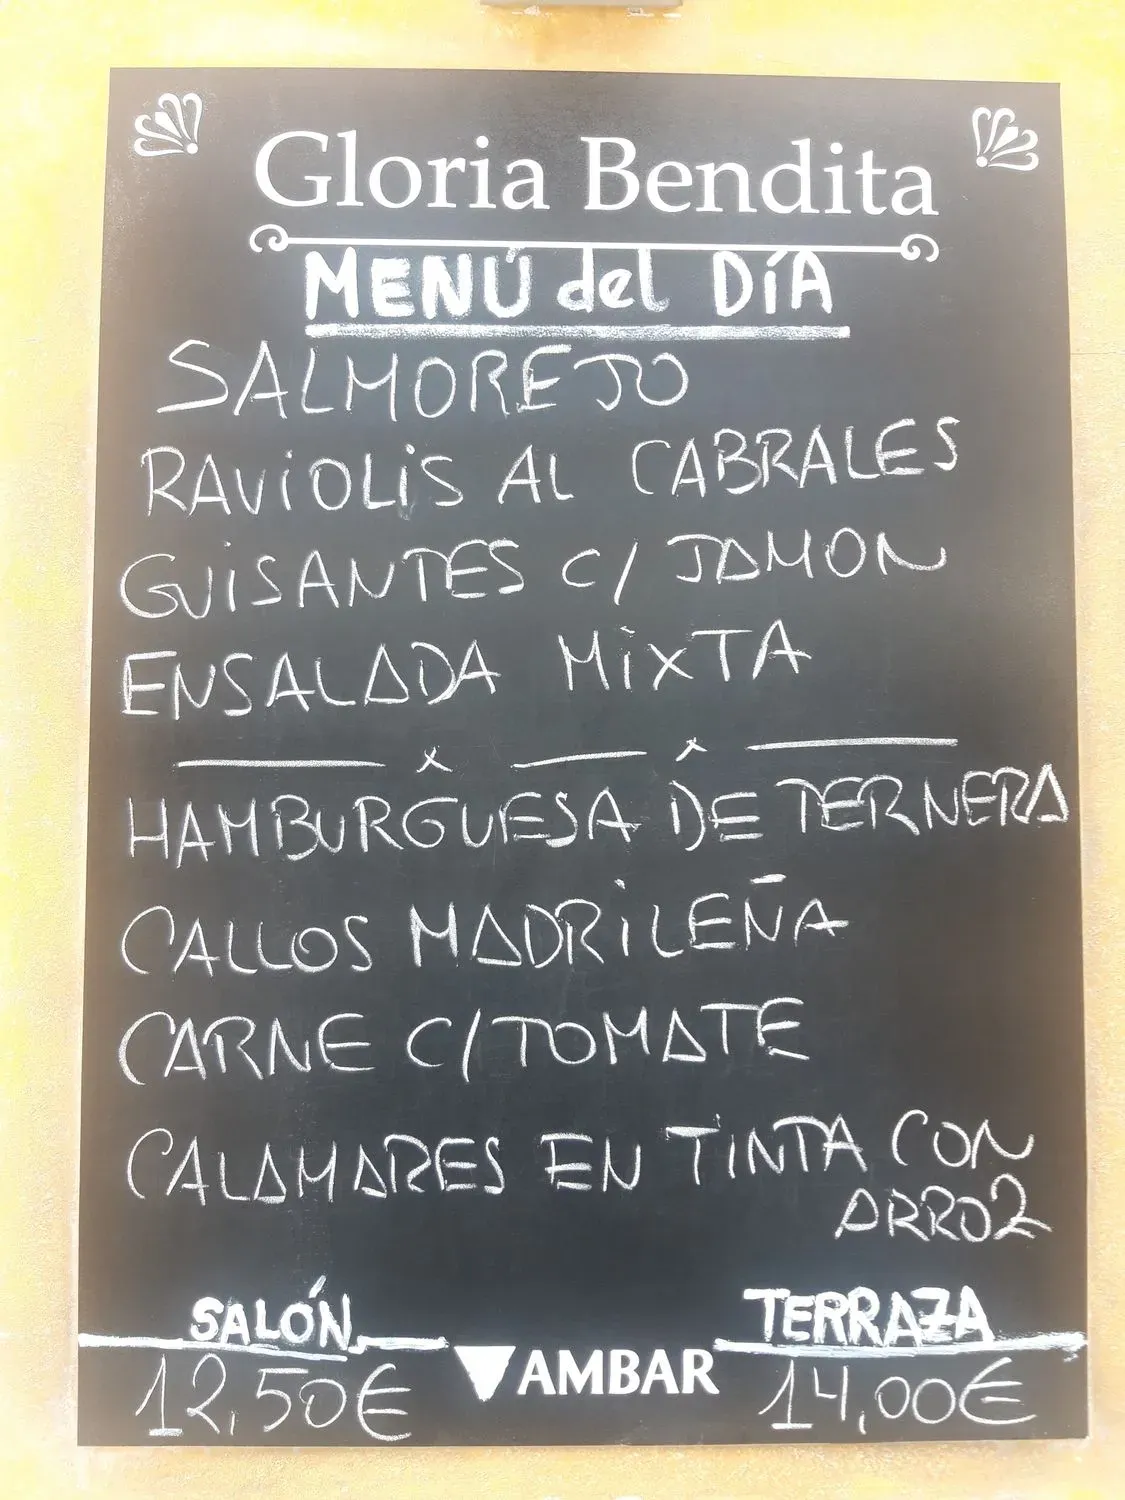 Gloria Bendita
MENÚ del DÍA
SALMOREJO
RAViOLiS AL CABRALES
GUiSANTES C/ JAMON
ENSALADA MiXTA
HAMBURGUESA DE TERNERA
CALLOS MADRiLEÑA
CARNE C/TOMATE
CALAMARES EN TiNTA CON
ARROZ
SALÓN TERRAZA
12,50€ AMBAR 14,00€